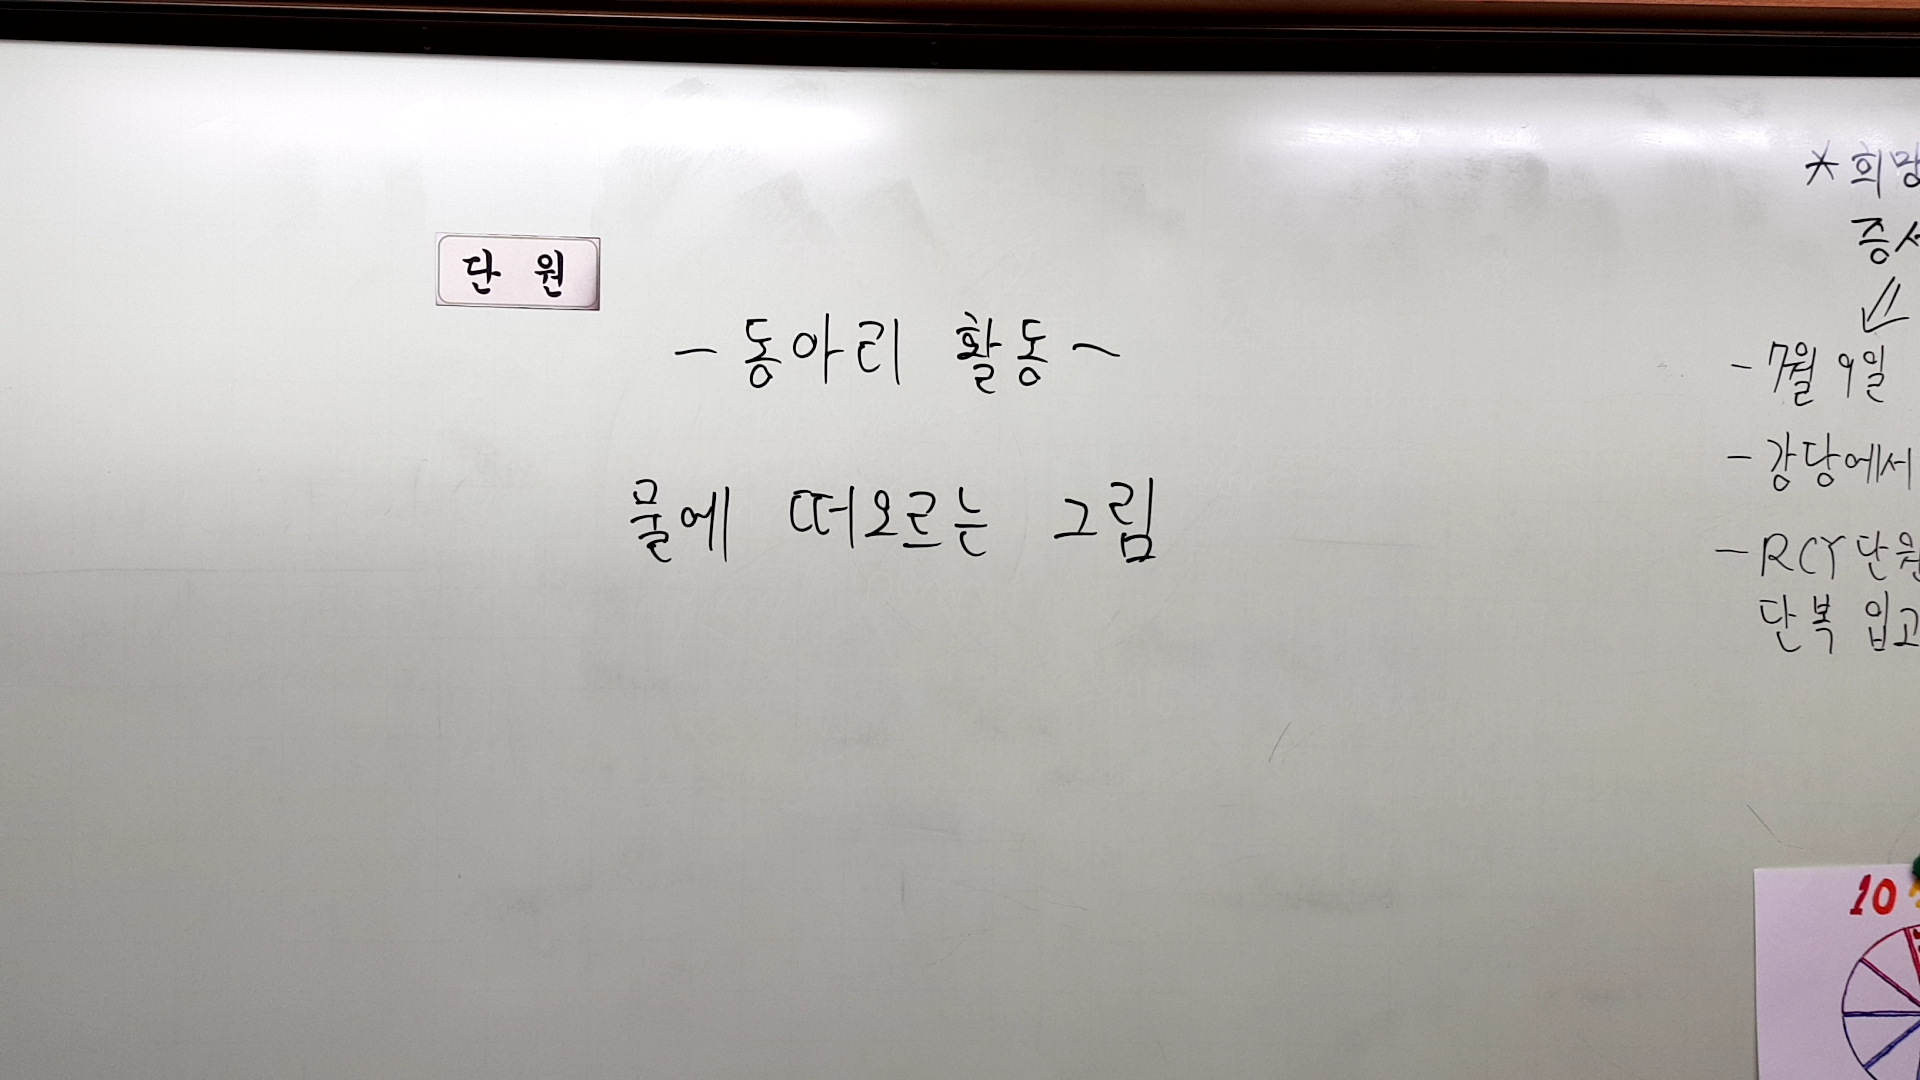 단 원
- 동아리 활동 ~
물에 떠오르는 그림
* 희망
증서
- 7월 9일
- 강당에서
- RCY 단원
단복 입고
10